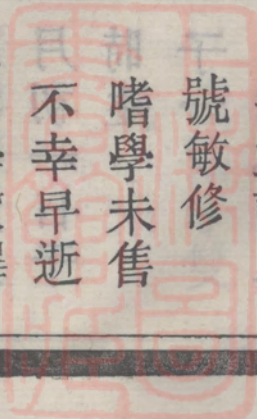 號敏修
嗜學未售
不幸早逝